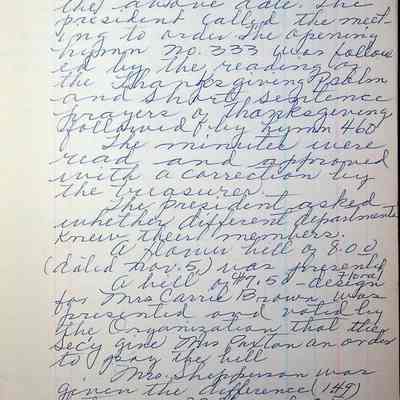 the above date. The
president called the meet-
ing to order. The opening
hymn no. 333 was follow
ed by the reading of
the Thanksgiving Psalm
and short sentence
prayers of thanksgiving
followed by hymn 460
The minutes were
read and approved
with a correction by
the treasurer.
The president asked
whether different departments
knew their members.
A flower bill of 8.00
(dated Nov. 5) was presented
A bill of $7.50 - floral design
for Mrs Carrie Brown, was
presented and voted by
the Organization that the
Sec'y give Mrs Paxton an order
to pay the bill
Mrs. Shepperson was
given the difference (149)